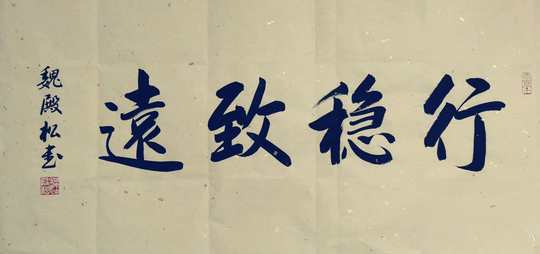 行稳致遠
魏殿松书